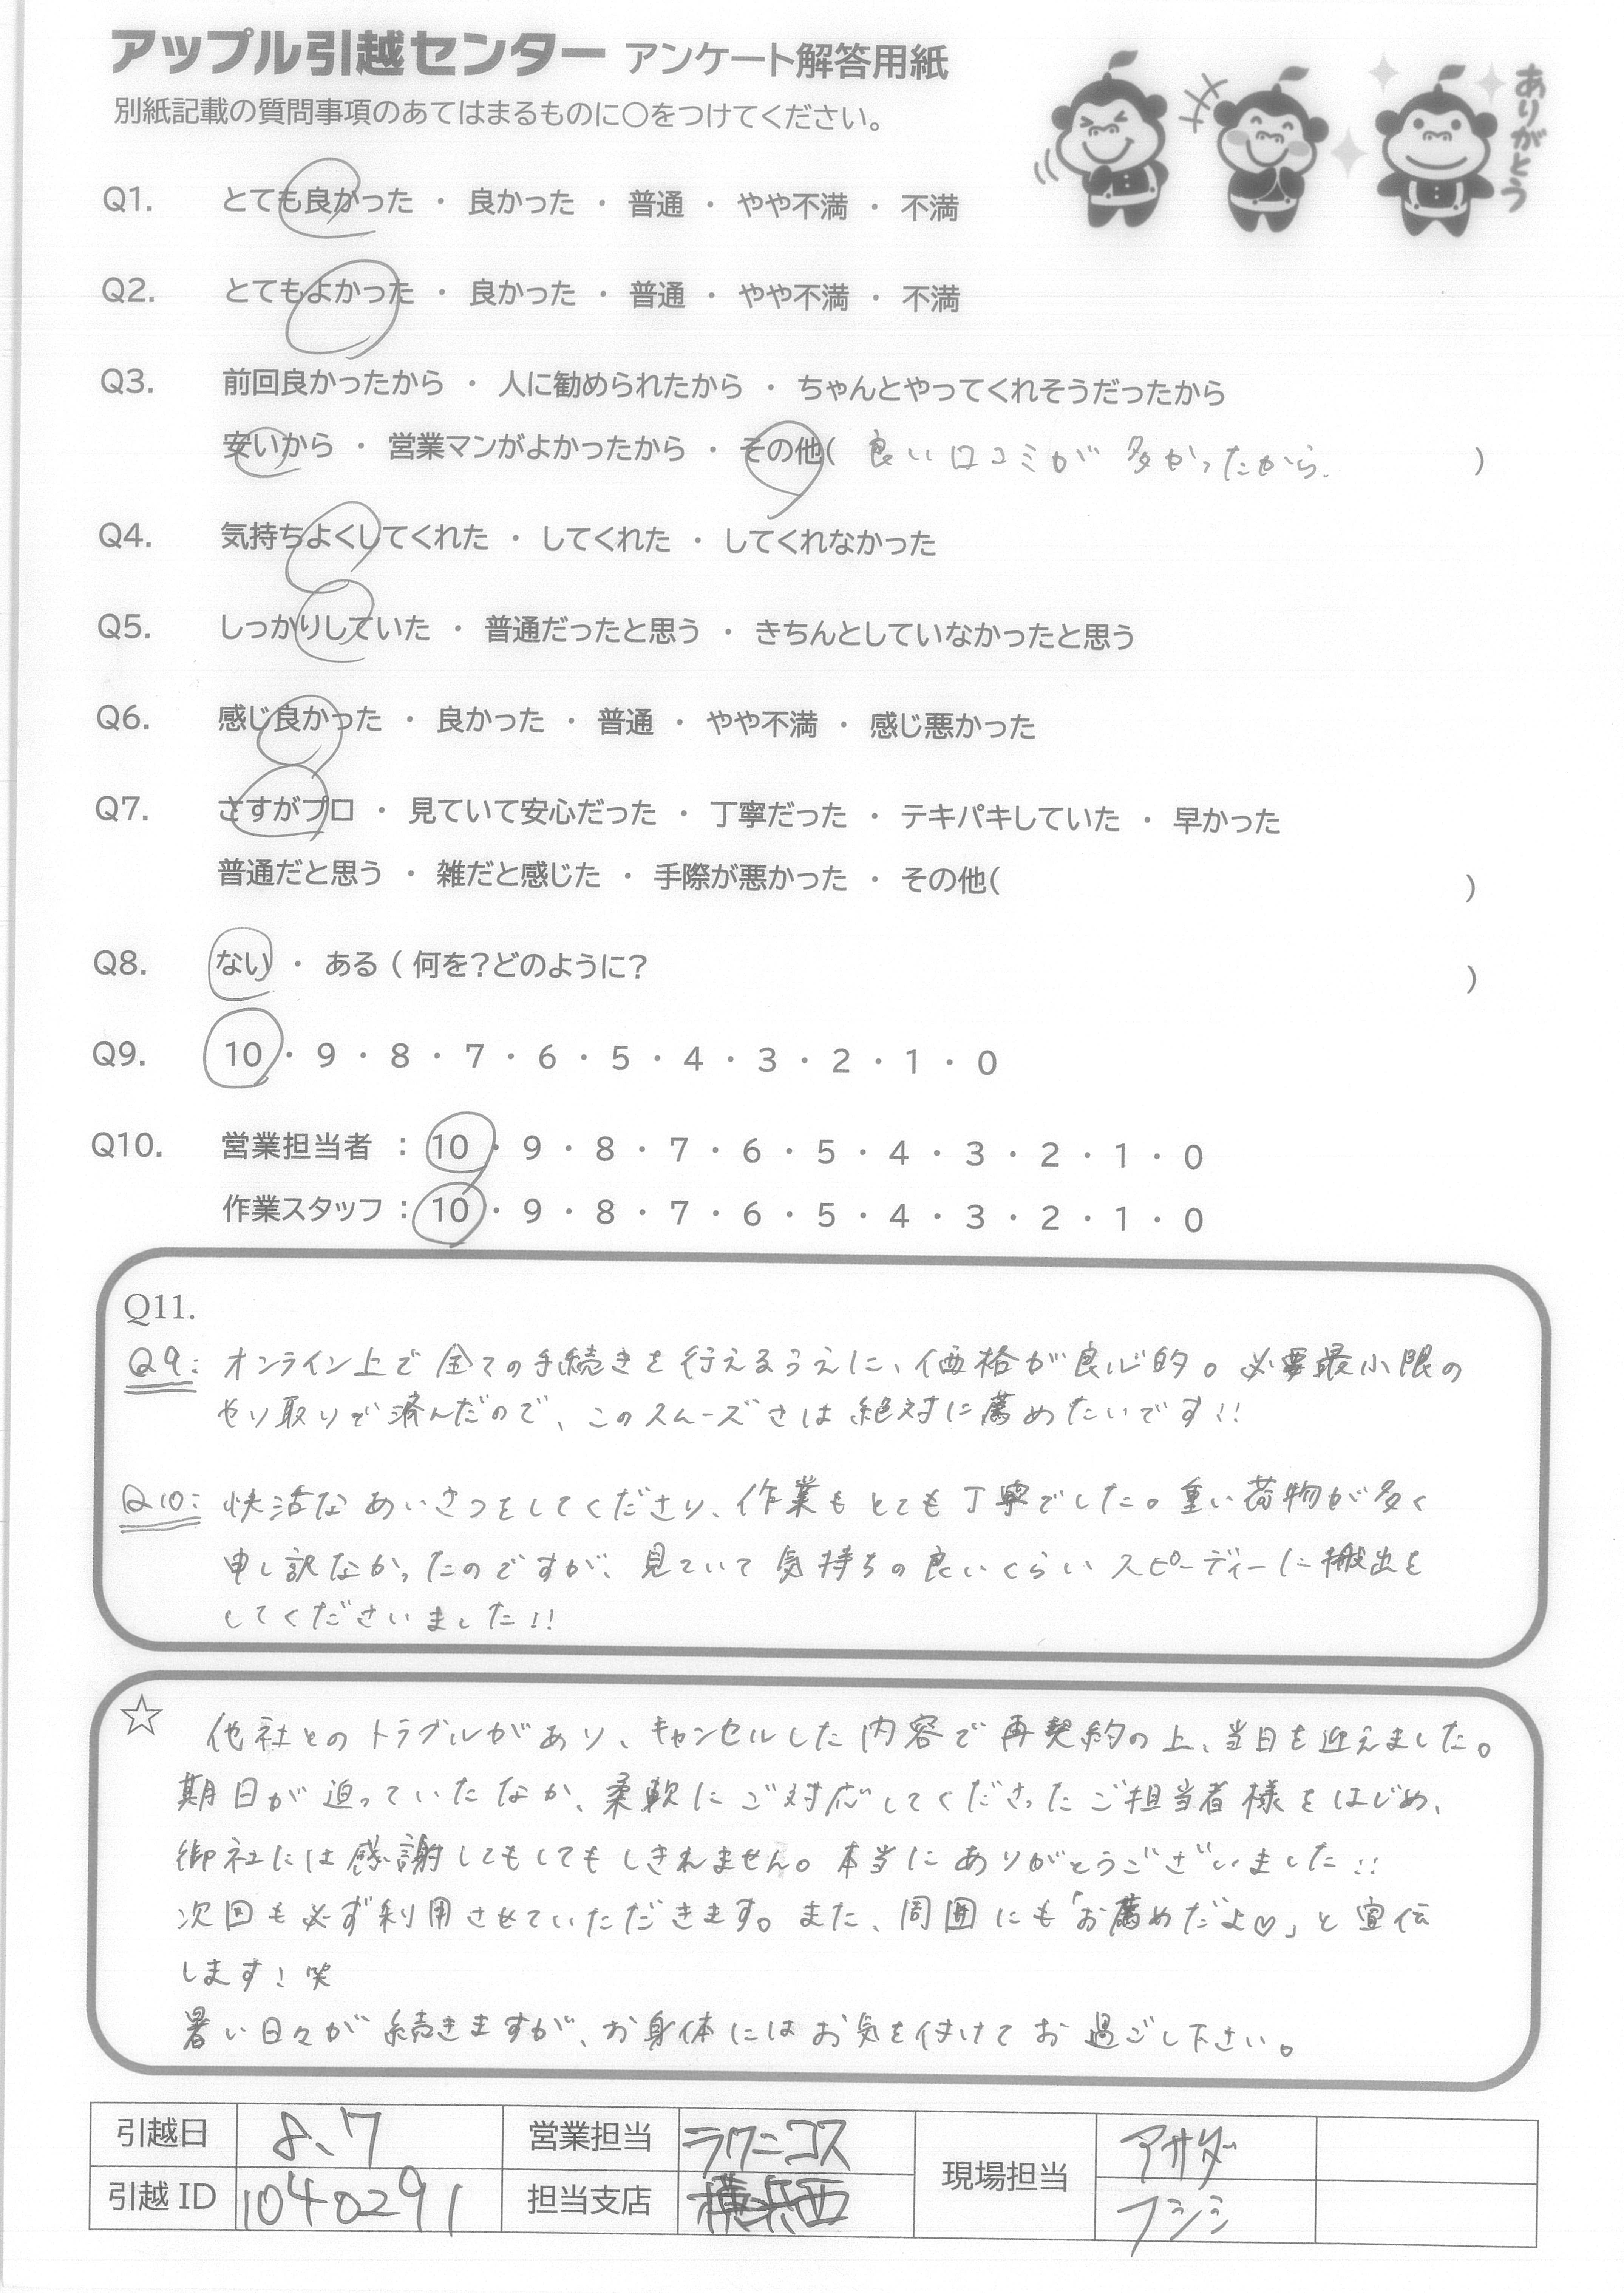 アップル引越センター アンケート解答用紙
別紙記載の質問事項のあてはまるものに○をつけてください。
ありがとう
Q1. とても良かった ・ 良かった ・ 普通 ・ やや不満 ・ 不満
Q2. とてもよかった ・ 良かった ・ 普通 ・ やや不満 ・ 不満
Q3. 前回良かったから ・ 人に勧められたから ・ ちゃんとやってくれそうだったから
安いから ・ 営業マンがよかったから ・ その他( 良い口コミが多かったから. )
Q4. 気持ちよくしてくれた ・ してくれた ・ してくれなかった
Q5. しっかりしていた ・ 普通だったと思う ・ きちんとしていなかったと思う
Q6. 感じ良かった ・ 良かった ・ 普通 ・ やや不満 ・ 感じ悪かった
Q7. さすがプロ ・ 見ていて安心だった ・ 丁寧だった ・ テキパキしていた ・ 早かった
普通だと思う ・ 雑だと感じた ・ 手際が悪かった ・ その他( )
Q8. ない ・ ある ( 何を?どのように? )
Q9. 10 ・ 9 ・ 8 ・ 7 ・ 6 ・ 5 ・ 4 ・ 3 ・ 2 ・ 1 ・ 0
Q10. 営業担当者 : 10 ・ 9 ・ 8 ・ 7 ・ 6 ・ 5 ・ 4 ・ 3 ・ 2 ・ 1 ・ 0
作業スタッフ : 10 ・ 9 ・ 8 ・ 7 ・ 6 ・ 5 ・ 4 ・ 3 ・ 2 ・ 1 ・ 0
Q11.
Q9: オンライン上で全ての手続きを行えるうえに、価格が良心的。必要最小限の
やり取りで済んだので、このスムーズさは絶対に薦めたいです!!
Q10: 快活なあいさつをしてくださり、作業もとても丁寧でした。重い荷物が多く
申し訳なかったのですが、見ていて気持ちの良いくらいスピーディーに搬出を
してくださいました!!
☆ 他社とのトラブルがあり、キャンセルした内容で再契約の上、当日を迎えました。
期日が迫っていたなか、柔軟にご対応してくださったご担当者様をはじめ、
御社には感謝してもしてもしきれません。本当にありがとうございました!!
次回も必ず利用させていただきます。また、周囲にも「お薦めだよ♡」と宣伝
します!笑
暑い日々が続きますが、お身体にはお気を付けてお過ごし下さい。
引越日 8、7 営業担当 ラクニコス 現場担当 アサダ
引越 ID 1040291 担当支店 フシミ